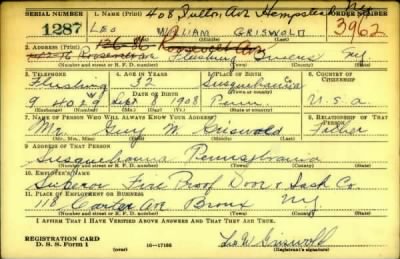 SERIAL NUMBER 1. NAME (Print) 408 Fulton Ave Hempstead NY ORDER NUMBER
1287 LEO WILLIAM GRISWOLD 3962
(First) (Middle) (Last)
2. ADDRESS (Print)
Roosevelt Ave Flushing Queens NY
(Number and street or R. F. D. number) (Town) (County) (State)
3. TELEPHONE 4. AGE IN YEARS 5. PLACE OF BIRTH 6. COUNTRY OF CITIZENSHIP
Flushing 32 Susquehanna
DATE OF BIRTH (Town or county)
9 4029 Sept 1908 Penn. U.S.A.
(Exchange) (Number) (Mo.) (Day) (Yr.) (State or country)
7. NAME OF PERSON WHO WILL ALWAYS KNOW YOUR ADDRESS 8. RELATIONSHIP OF THAT PERSON
Mr. Guy M. Griswold Father
(Mr., Mrs., Miss) (First) (Middle) (Last)
9. ADDRESS OF THAT PERSON
Susquehanna Pennsylvania
(Number and street or R. F. D. number) (Town) (County) (State)
10. EMPLOYER'S NAME
Superior Fire Proof Door & Sash Co.
11. PLACE OF EMPLOYMENT OR BUSINESS
118 Carter Ave Bronx NY
(Number and street or R. F. D. number) (Town) (County) (State)
I AFFIRM THAT I HAVE VERIFIED ABOVE ANSWERS AND THAT THEY ARE TRUE.
REGISTRATION CARD
D. S. S. Form 1 (over) 16—17105 Leo W Griswold
(Registrant's signature)